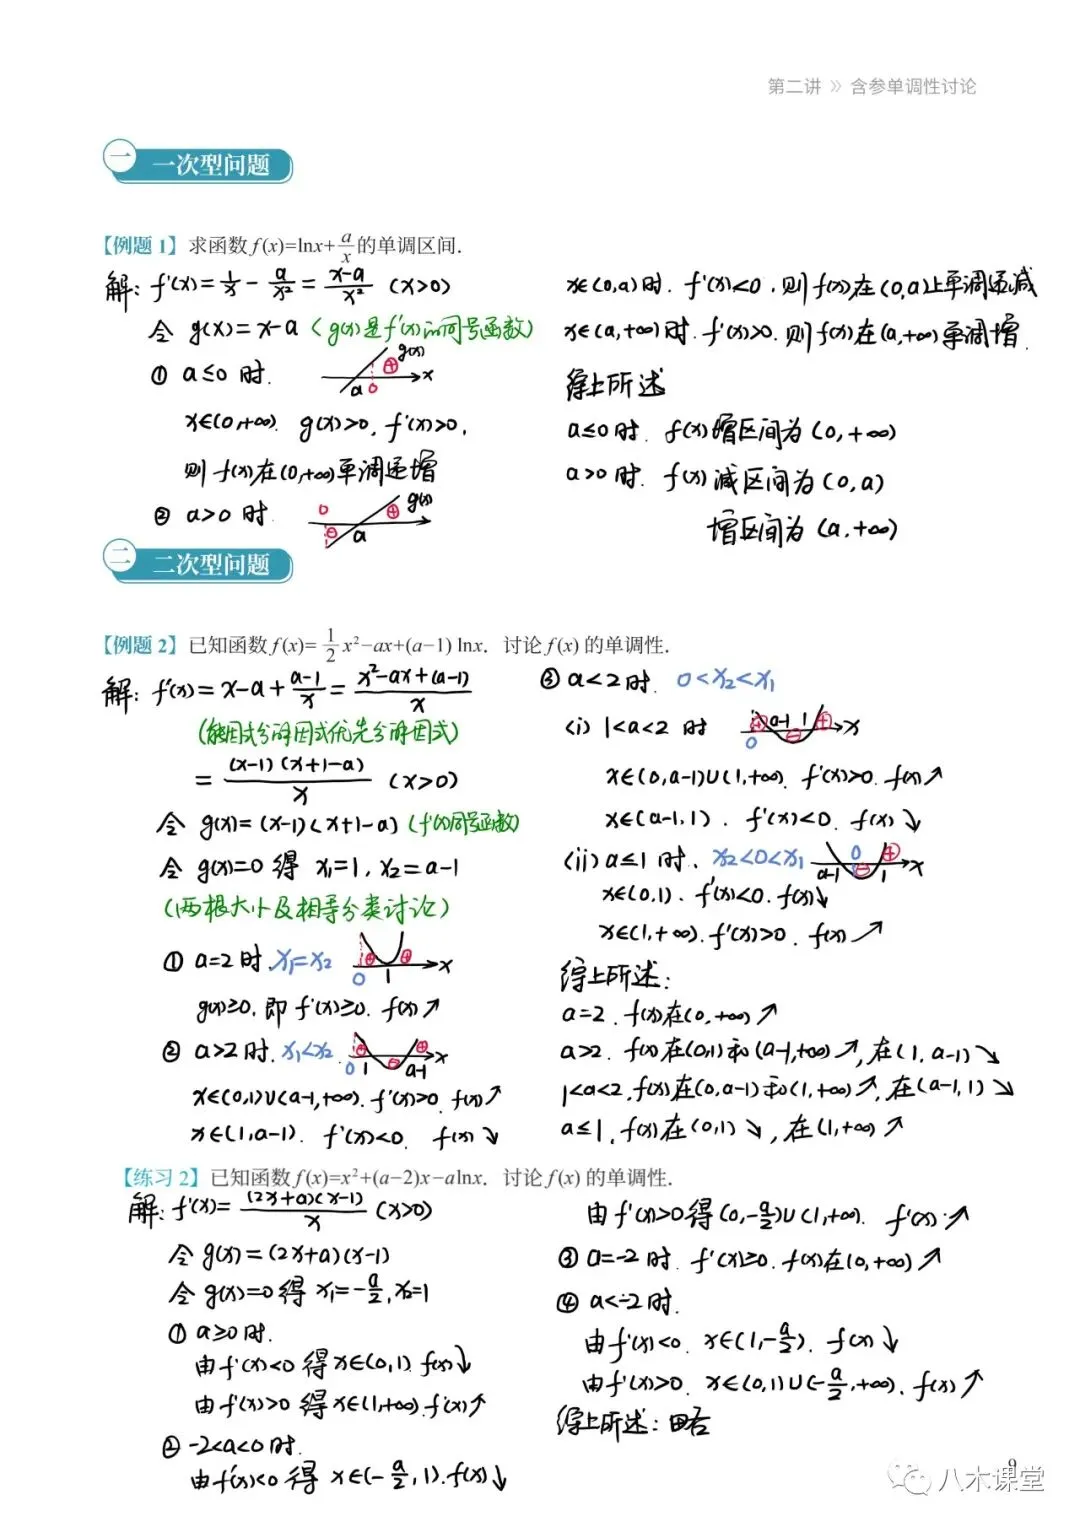 第二讲 》 含参单调性讨论
一 一次型问题
【例题 1】求函数 f(x)=lnx+a/x 的单调区间.
解: f'(x)=1/x-a/x²=(x-a)/x² (x>0)
令 g(x)=x-a (g(x)是f'(x)的同号函数)
① a≤0 时. g(x) ⊕ x a 0
x∈(0,+∞). g(x)>0, f'(x)>0,
则 f(x)在(0,+∞)单调递增
② a>0 时. 0 ⊖ a ⊕ g(x)
x∈(0,a)时. f'(x)<0. 则f(x)在(0,a)上单调递减
x∈(a,+∞)时. f'(x)>0. 则f(x)在(a,+∞)单调增.
综上所述
a≤0时. f(x)增区间为(0,+∞)
a>0时. f(x)减区间为(0,a)
增区间为(a,+∞)
二 二次型问题
【例题 2】已知函数 f(x)=1/2x²-ax+(a-1)lnx. 讨论 f(x) 的单调性.
解: f'(x)=x-a+(a-1)/x=(x²-ax+(a-1))/x
(能因式分解因式优先分解因式)
=(x-1)(x+1-a)/x (x>0)
令 g(x)=(x-1)(x+1-a) (f'(x)同号函数)
令 g(x)=0 得 x₁=1, x₂=a-1
(两根大小及相等分类讨论)
① a=2时. x₁=x₂ ⊕ ⊕ x 0 1
g(x)≥0, 即 f'(x)≥0. f(x)↗
② a>2时. x₁<x₂. ⊕ ⊖ ⊕ x 0 1 a-1
x∈(0,1)∪(a-1,+∞). f'(x)>0. f(x)↗
x∈(1,a-1). f'(x)<0. f(x)↘
③ a<2时. 0<x₂<x₁
(i) 1<a<2 时 ⊕ a-1 1 ⊕ ⊖ x 0
x∈(0,a-1)∪(1,+∞). f'(x)>0. f(x)↗
x∈(a-1,1). f'(x)<0. f(x)↘
(ii) a≤1 时. x₂<0<x₁ 0 ⊕ ⊖ a-1 1 x
x∈(0,1). f'(x)<0. f(x)↘
x∈(1,+∞). f'(x)>0. f(x)↗
综上所述:
a=2. f(x)在(0,+∞)↗
a>2. f(x)在(0,1)和(a-1,+∞)↗, 在(1,a-1)↘
1<a<2, f(x)在(0,a-1)和(1,+∞)↗, 在(a-1,1)↘
a≤1, f(x)在(0,1)↘, 在(1,+∞)↗
【练习 2】已知函数 f(x)=x²+(a-2)x-alnx. 讨论 f(x) 的单调性.
解: f'(x)=(2x+a)(x-1)/x (x>0)
令 g(x)=(2x+a)(x-1)
令 g(x)=0 得 x₁=-a/2, x₂=1
① a≥0时.
由 f'(x)<0 得 x∈(0,1). f(x)↘
由 f'(x)>0 得 x∈(1,+∞). f(x)↗
② -2<a<0时.
由f'(x)<0 得 x∈(-a/2,1). f(x)↘
由 f'(x)>0得(0,-a/2)∪(1,+∞). f(x)↗
③ a=-2时. f'(x)≥0. f(x)在(0,+∞)↗
④ a<-2时.
由f'(x)<0. x∈(1,-a/2). f(x)↘
由f'(x)>0. x∈(0,1)∪(-a/2,+∞). f(x)↗
综上所述: 略
9
八木课堂